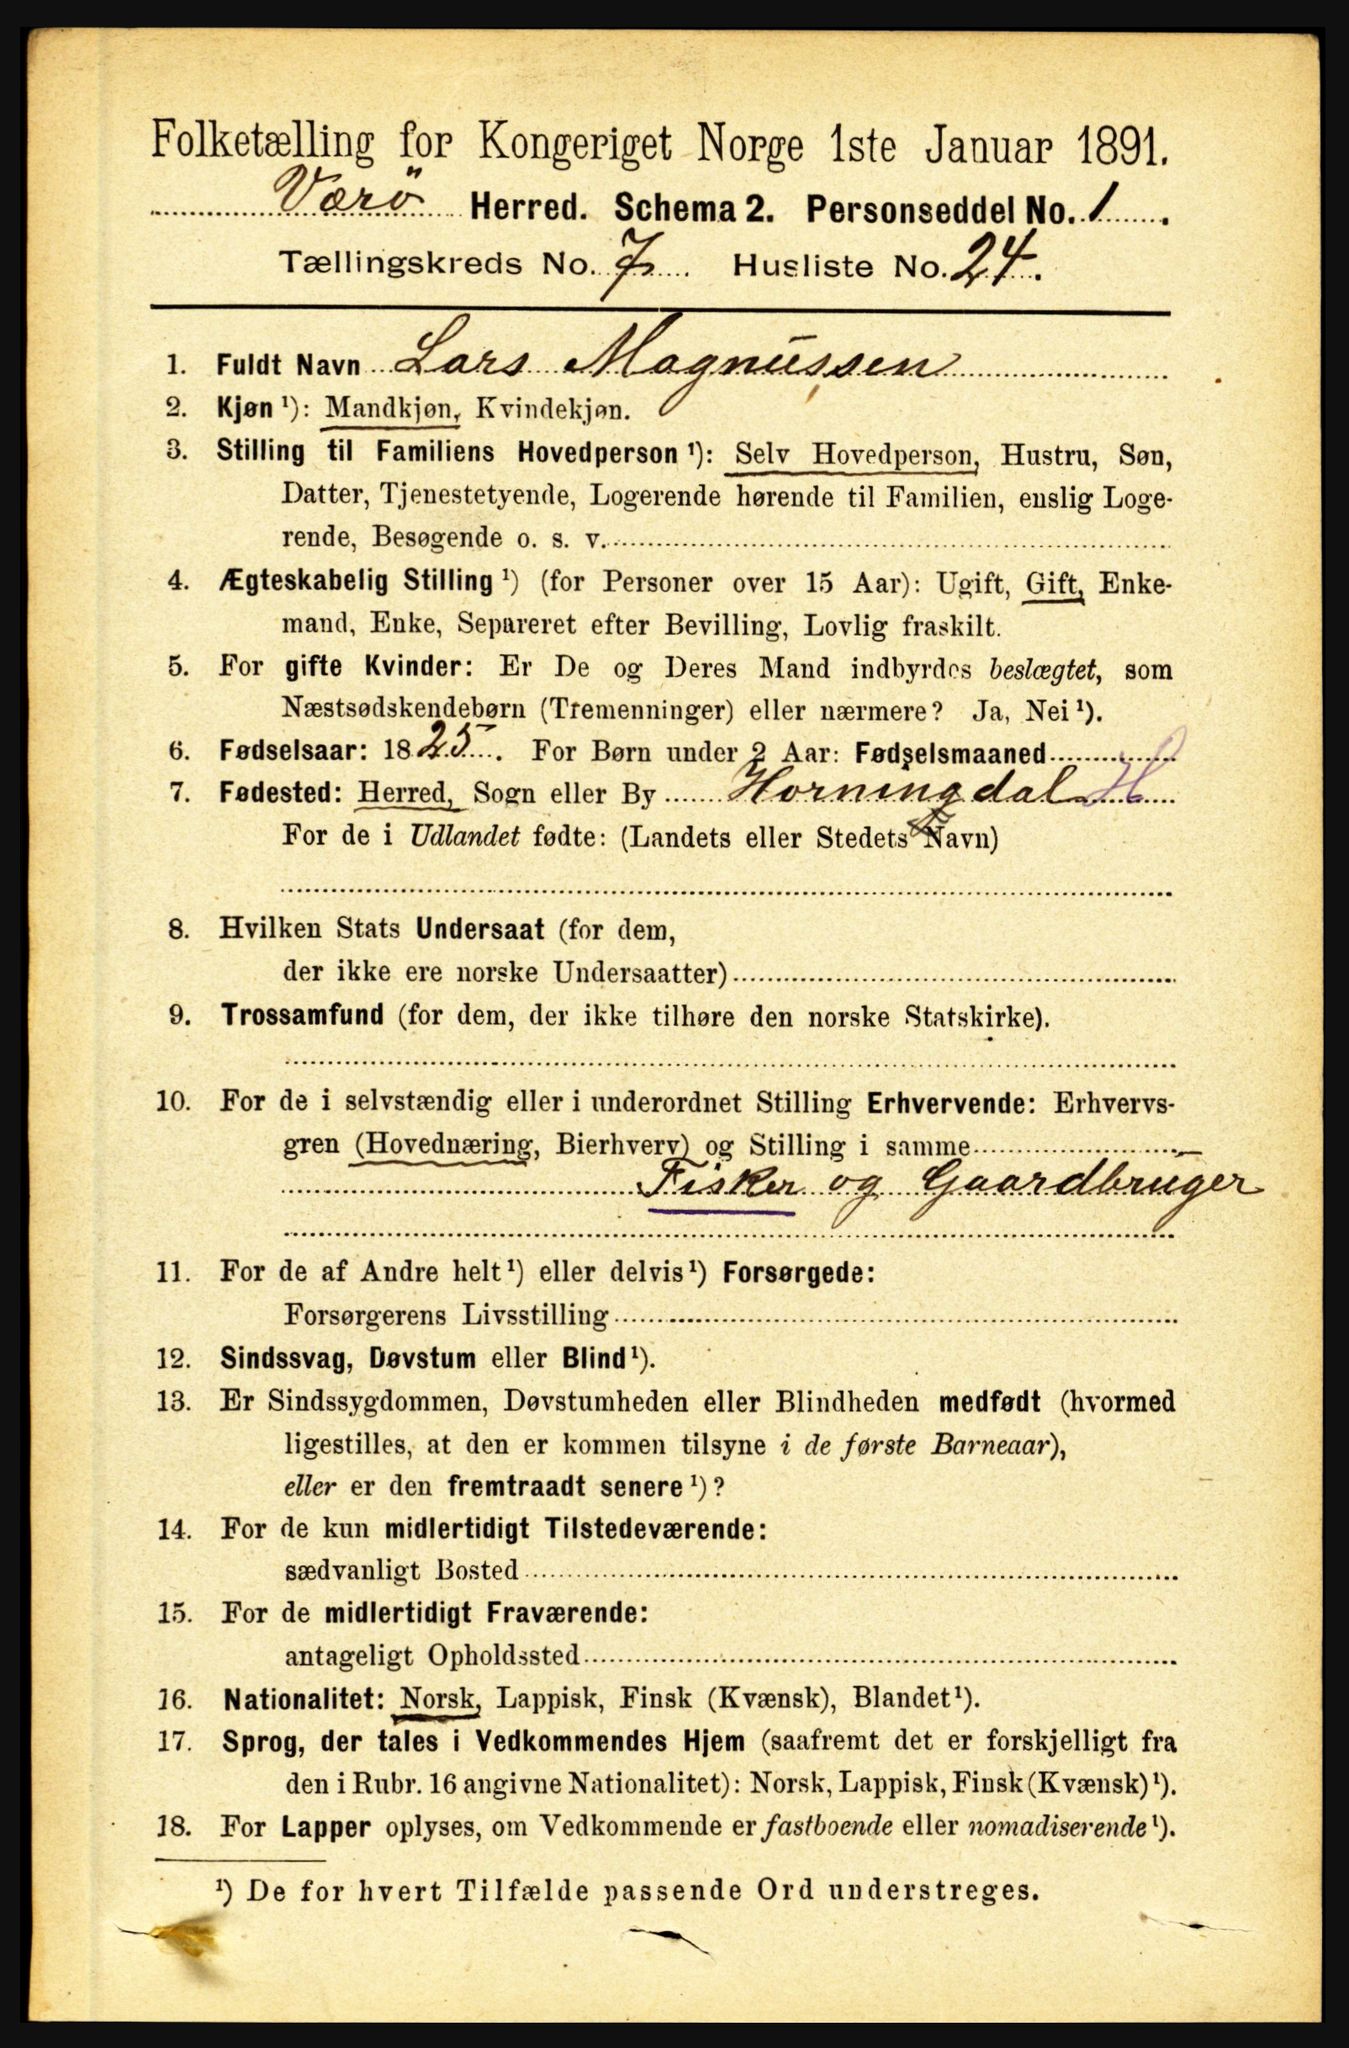 Folketælling for Kongeriget Norge 1ste Januar 1891.
Værö Herred. Schema 2. Personseddel No. 1.
Tællingskreds No. 7. Husliste No. 24.
1. Fuldt Navn Lars Magnussen
2. Kjøn ¹): Mandkjøn, Kvindekjøn.
3. Stilling til Familiens Hovedperson ¹): Selv Hovedperson, Hustru, Søn,
Datter, Tjenestetyende, Logerende hørende til Familien, enslig Loge-
rende, Besøgende o. s. v.
4. Ægteskabelig Stilling ¹) (for Personer over 15 Aar): Ugift, Gift, Enke-
mand, Enke, Separeret efter Bevilling, Lovlig fraskilt.
5. For gifte Kvinder: Er De og Deres Mand indbyrdes beslægtet, som
Næstsødskendebørn (Tremenninger) eller nærmere? Ja, Nei ¹).
6. Fødselsaar: 1825. For Børn under 2 Aar: Fødselsmaaned
7. Fødested: Herred, Sogn eller By Horningdal H
For de i Udlandet fødte: (Landets eller Stedets Navn)
8. Hvilken Stats Undersaat (for dem,
der ikke ere norske Undersaatter)
9. Trossamfund (for dem, der ikke tilhøre den norske Statskirke).
10. For de i selvstændig eller i underordnet Stilling Erhvervende: Erhvervs-
gren (Hovednæring, Bierhverv) og Stilling i samme
Fisker og Gaardbruger
11. For de af Andre helt ¹) eller delvis ¹) Forsørgede:
Forsørgerens Livsstilling
12. Sindssvag, Døvstum eller Blind ¹).
13. Er Sindssygdommen, Døvstumheden eller Blindheden medfødt (hvormed
ligestilles, at den er kommen tilsyne i de første Barneaar),
eller er den fremtraadt senere ¹)?
14. For de kun midlertidigt Tilstedeværende:
sædvanligt Bosted
15. For de midlertidigt Fraværende:
antageligt Opholdssted
16. Nationalitet: Norsk, Lappisk, Finsk (Kvænsk), Blandet ¹).
17. Sprog, der tales i Vedkommendes Hjem (saafremt det er forskjelligt fra
den i Rubr. 16 angivne Nationalitet): Norsk, Lappisk, Finsk (Kvænsk) ¹).
18. For Lapper oplyses, om Vedkommende er fastboende eller nomadiserende ¹).
¹) De for hvert Tilfælde passende Ord understreges.